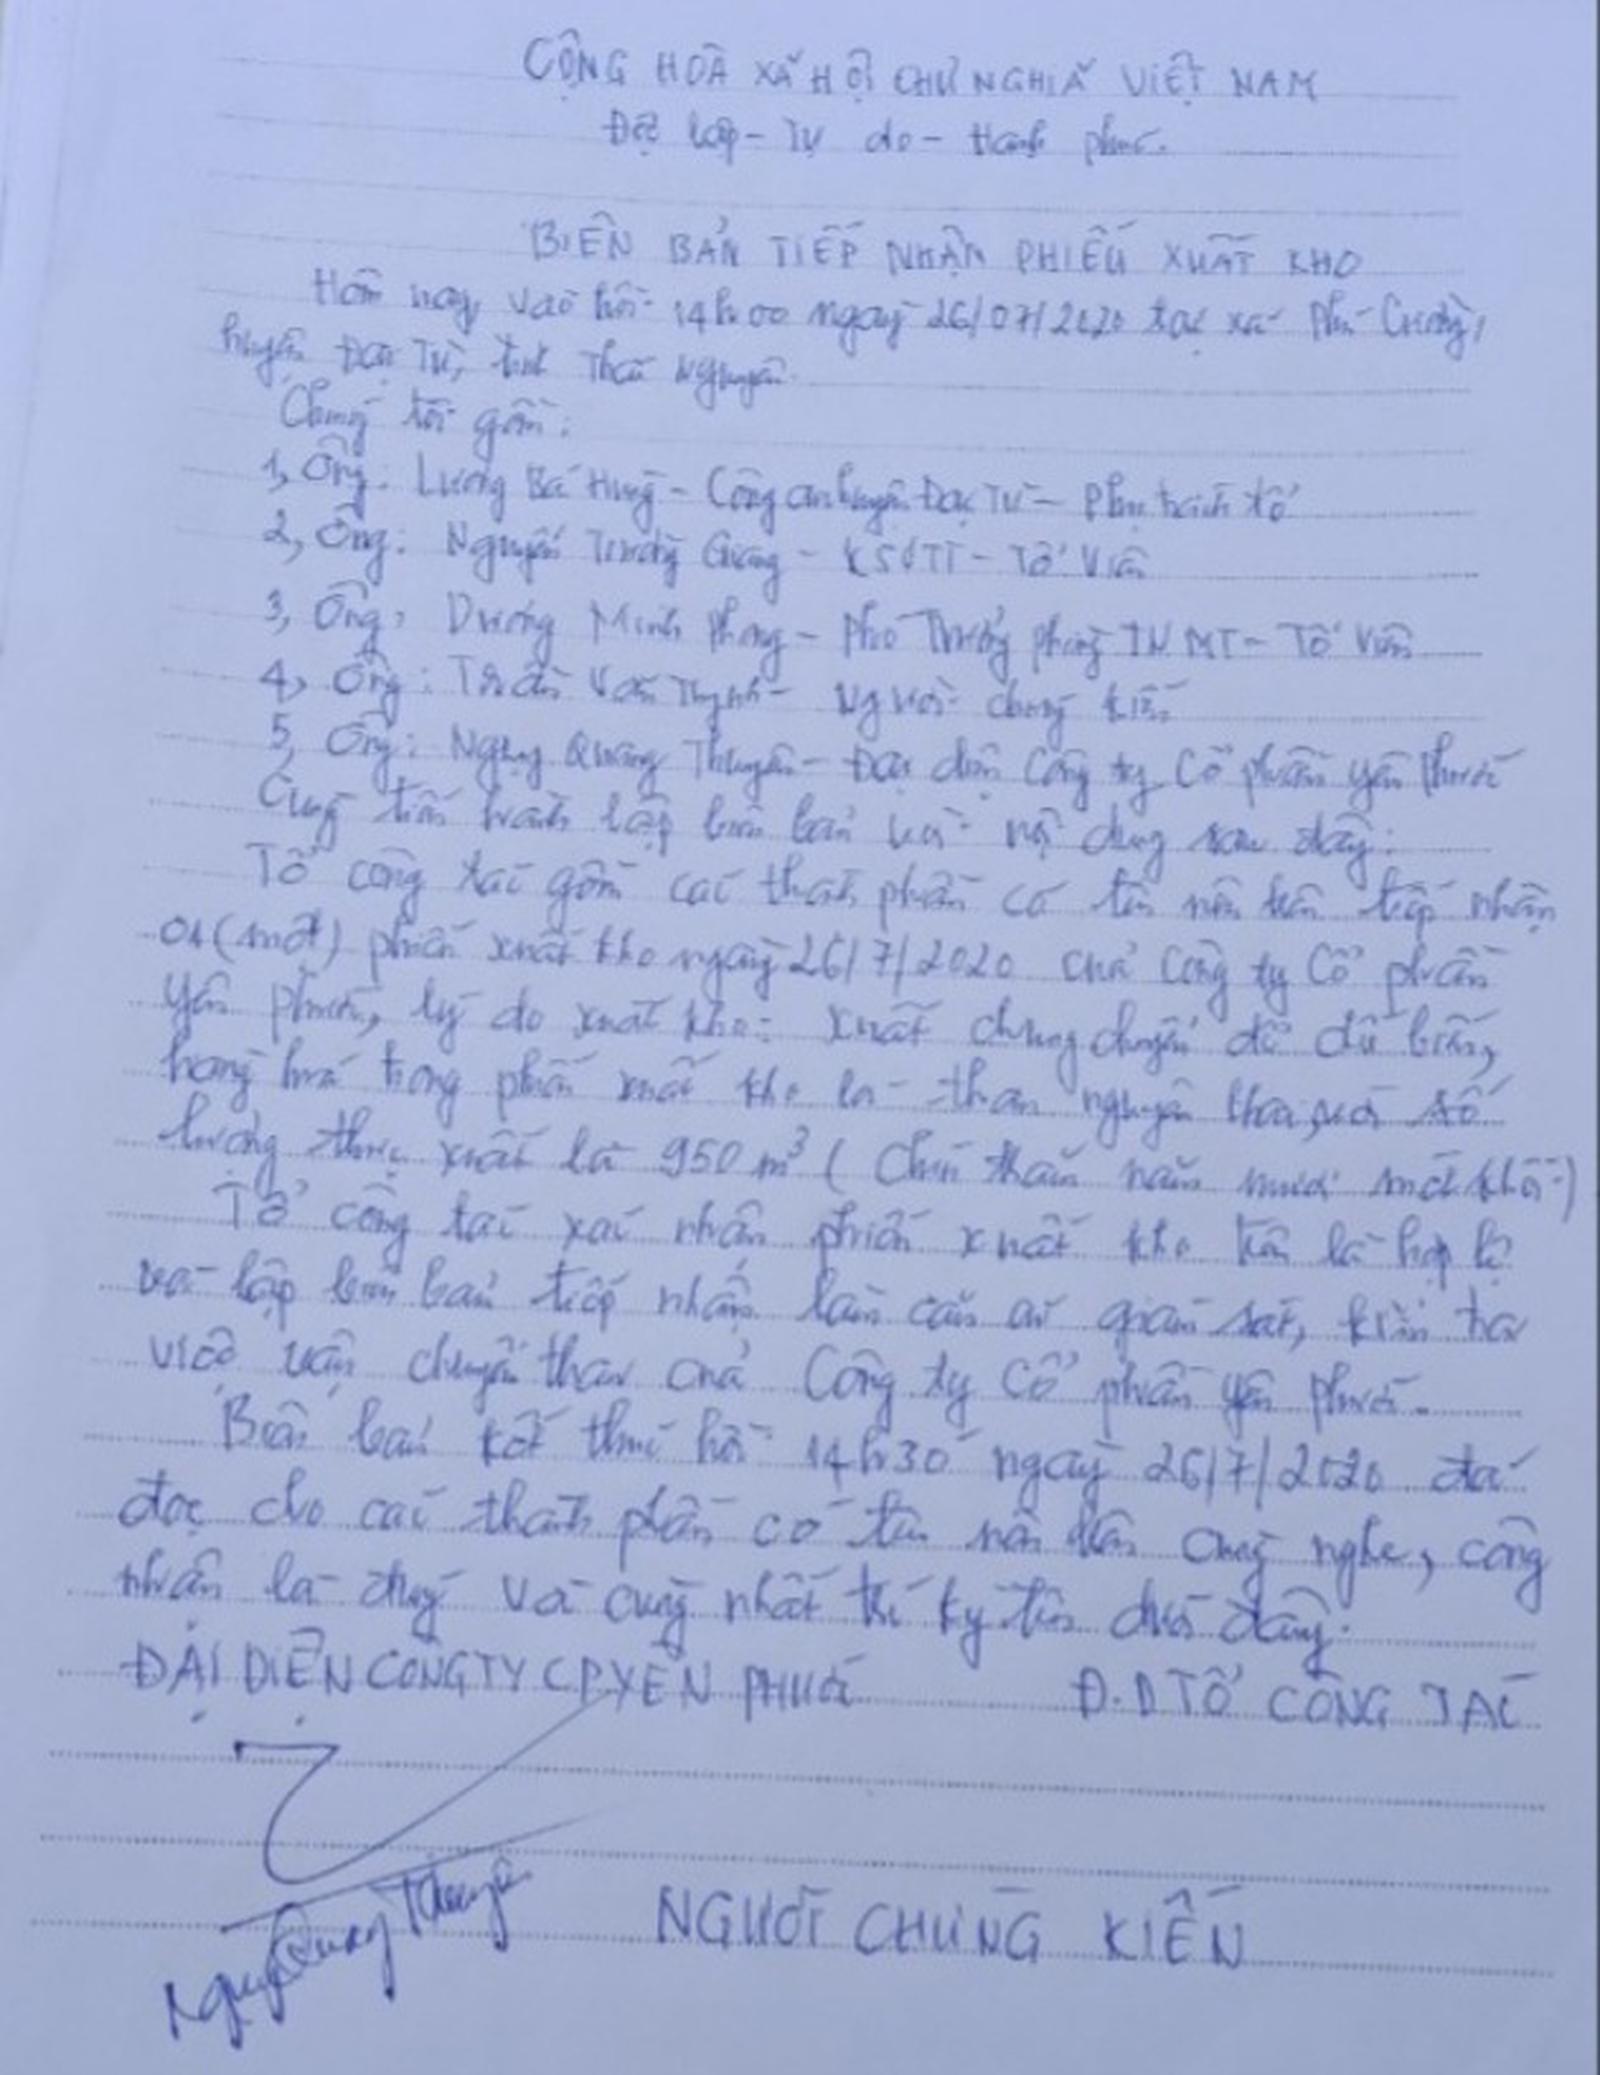 CỘNG HOÀ XÃ HỘI CHỦ NGHĨA VIỆT NAM
Độc lập - Tự do - Hạnh phúc.
BIÊN BẢN TIẾP NHẬN PHIẾU XUẤT KHO
Hôm nay, vào hồi 14h00 ngày 26/07/2020 tại xã Phú Cường,
huyện Đại Từ, tỉnh Thái Nguyên.
Chúng tôi gồm:
1, Ông: Lương Bá Hùng - Công an huyện Đại Từ - Phụ trách tổ
2, Ông: Nguyễn Trường Giang - KSVTT - Tổ Viên
3, Ông: Dương Minh Phong - Phó Trưởng phòng TNMT - Tổ Viên
4, Ông: Trần Văn Thịnh - Người chứng kiến
5, Ông: Ngụy Quang Thuyên - Đại diện Công ty Cổ phần Yên Phước
Cùng tiến hành lập biên bản với nội dung sau đây:
Tổ công tác gồm các thành phần có tên nêu trên tiếp nhận
01 (một) phiếu xuất kho ngày 26/7/2020 của Công ty Cổ phần
Yên Phước, lý do xuất kho: xuất chung chuyển để dự biến,
hàng hoá trong phiếu xuất kho là than nguyên khai, với số
lượng thực xuất là 950 m³ (Chín trăm năm mươi mét khối)
Tổ công tác xác nhận phiếu xuất kho trên là hợp lệ
và lập biên bản tiếp nhận làm căn cứ giám sát, kiểm tra
việc vận chuyển than của Công ty Cổ phần Yên Phước.
Biên bản kết thúc hồi 14h30 ngày 26/7/2020 đã
đọc cho các thành phần có tên nêu trên cùng nghe, công
nhận là đúng và cùng nhất trí ký tên dưới đây.
ĐẠI DIỆN CÔNG TY CP YÊN PHƯỚC Đ.D TỔ CÔNG TÁC
Ngụy Quang Thuyên
NGƯỜI CHỨNG KIẾN